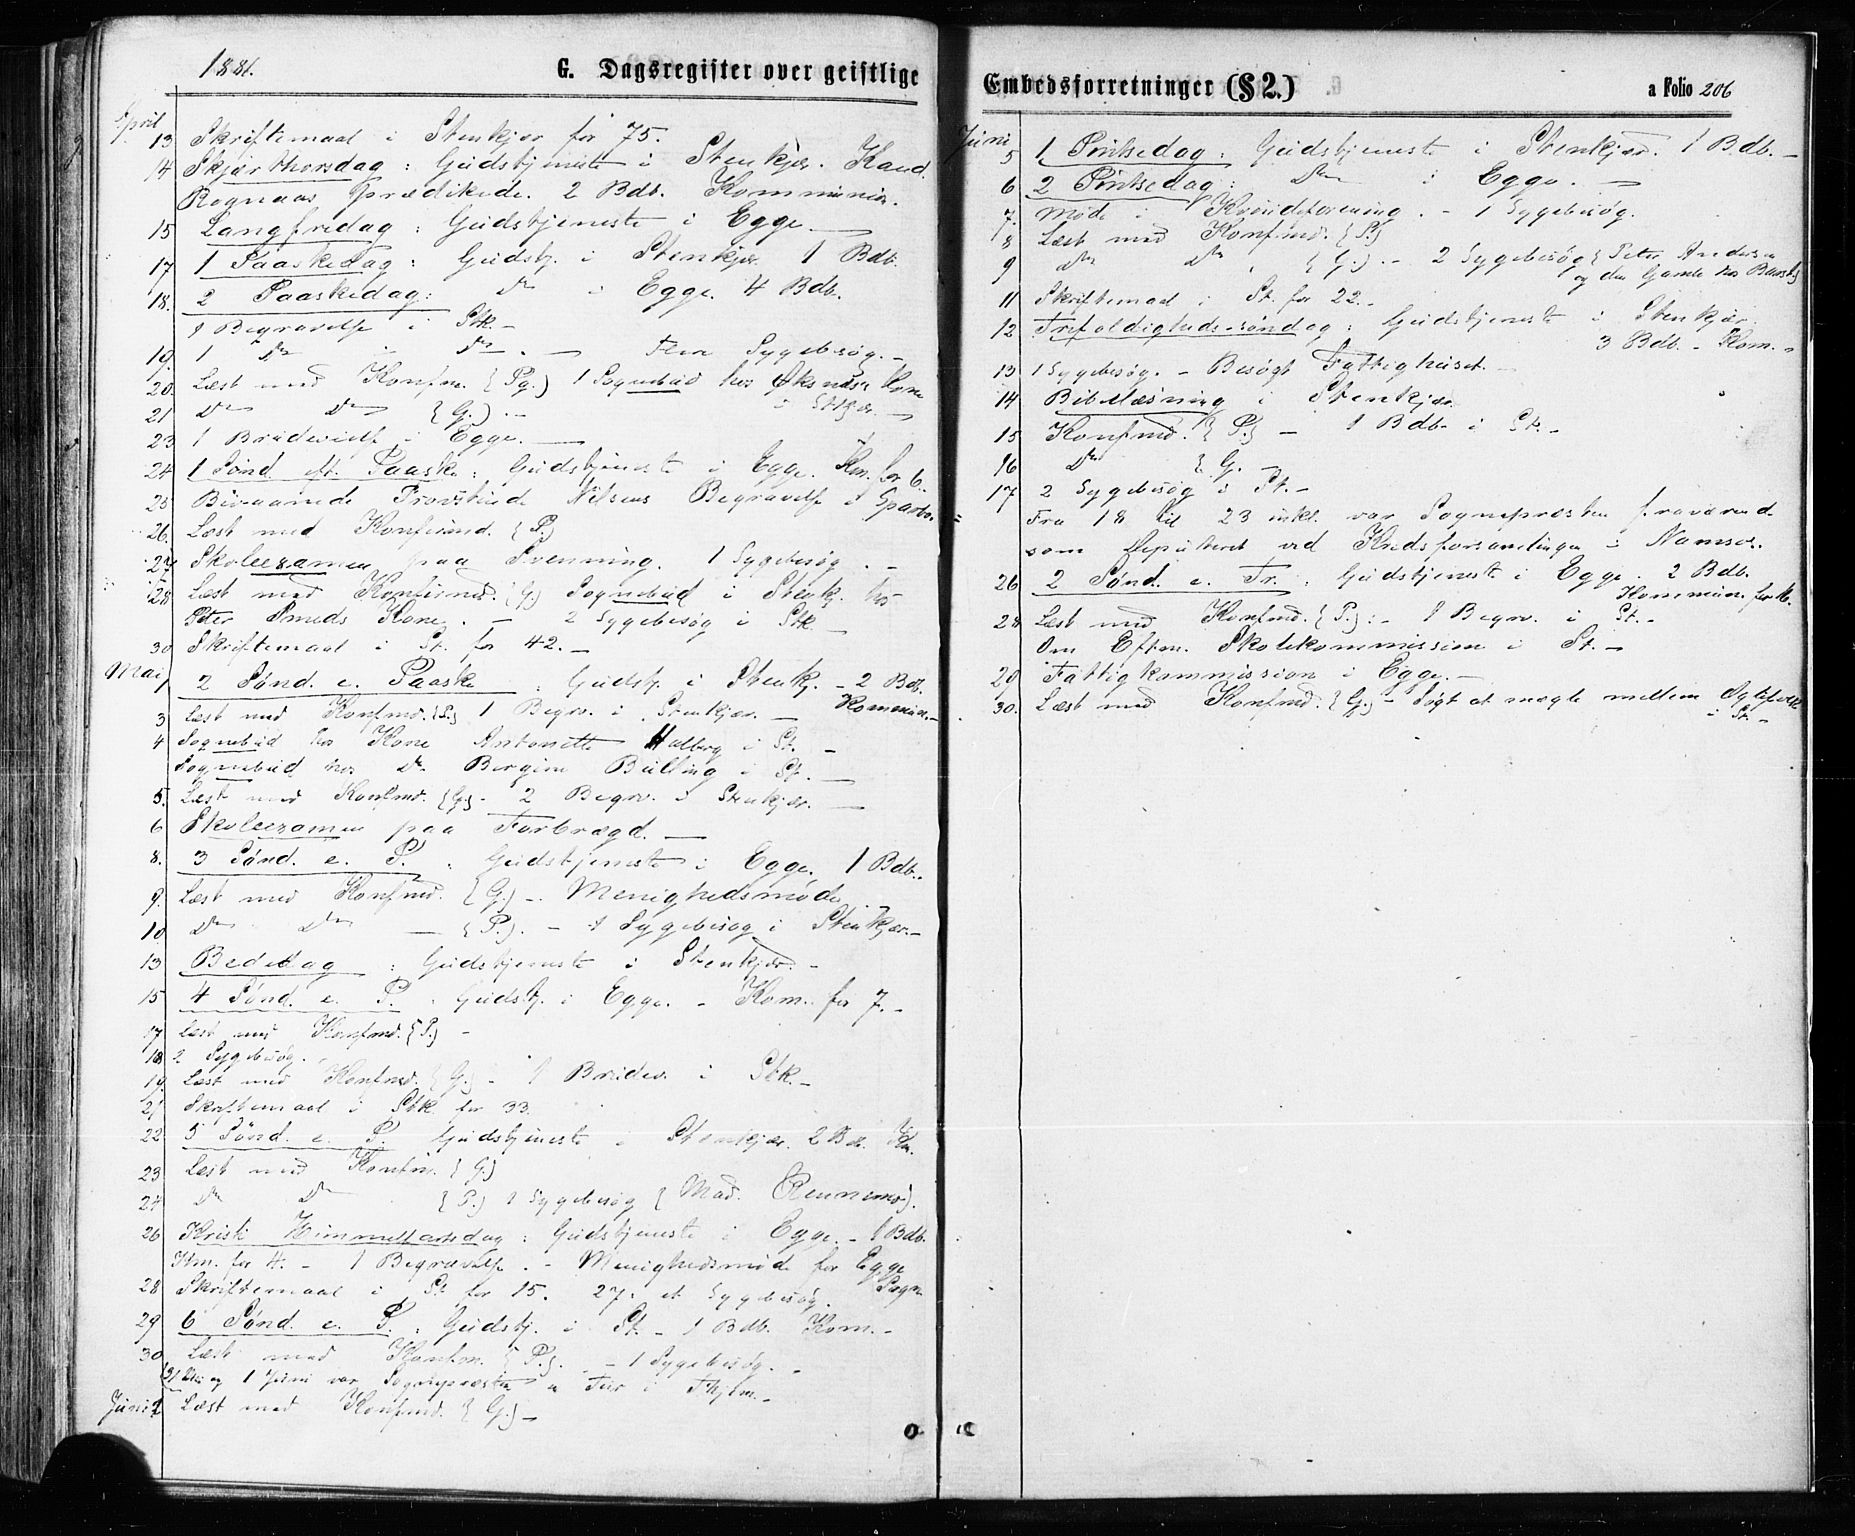 1881.
G. Dagsregister over geistlige
April
13 Skriftemaal i Stenkjær for 75.
14 Skjærthorsdag: Gudstjeneste i Stenkjær. Kand.
Rognaas prædikede. 2 Bdb. Kommunion.
15 Langfredag: Gudstjeneste i Egge. —
17 1 Paaskedag: Gudstj. i Stenkjær 1 Bdb.
18. 2 Paaskedag: Do i Egge. 4 Bdb.
1 Begravelse i Stk. –
19. 1 Do i Do. — Flere Sygebesøg. –
20. Læst med Konfm. {Pg.) 1 Sognebud hos
i Stkjær. —
21 Do Do {G.). –
23 1 Brudevielse i Egge. —
24 1 Sønd. eft. Paaske: Gudstjeneste i Egge. Km. for 6.
25 Bivaanede Provstinde Nilsens Begravelse i Sparbo.
26. Læst med Konfirmd. {P.)
27 Skoleexamen paa Svenning. 1 Sygebesøg. –
28 Læst med Konfirmd. {G.) Sognebud i Stenkj. hos
Peter Smeds Kone. – 2 Sygebesøg i Stk –
30 Skriftemaal i St. for 42. –
Mai
1 2 Sønd. e. Paaske: Gudstj. i Stenkj. – 2 Bdb.
Kommunion. –
3 Læst med Konfmd. {P.) 1 Begrv. i Stenkjær. —
4 Sognebud hos Kone Antonette Halberg i St. –
Sognebud hos Do Bergine Bulling i St. —
5. Læst med Konfmd. {G.) – 2 Begrv. i Stenkjær. —
6 Skoleexamen paa Forbrægd. —
8. 3 Sønd. e. P.: Gudstjeneste i Egge. 1 Bdb.
9. Læst med Konfmd. {G.) –. Menighedsmøde. –
10 Do Do — {P.). – 1 Sygebesøg i Stenkjær. –
13 Bededag: Gudstjeneste i Stenkjær. –
15 4 Sønd. e. P.: Gudstj. i Egge. – Kom. for 7. –
17 Læst med Konfmd. {P.) –
18 2 Sygebesøg.
19. Læst med Konfmd. {G.) – 1 Brudev. i Stk. –
21 Skriftemaal i Stk. for 33.
22. 5 Sønd. e. P. Gudstjeneste i Stenkjær. 2 Bdb. Km.
23 Læst med Konfm. {G.)
24 Do Do {P.) 1 Sygebesøg {Mad. Rennemo).
26 Kristi Himmelfartsdag: Gudstjeneste i Egge. – 1 Bdb.
Km. for 4. – 1 Begravelse. – Menighedsmøde for Egge
Sogn
28 Skriftemaal i St. for 15. 27: et Sygebesøg.
29 6 Sønd. e. P.: Gudstj. i St. – 1 Bdb. Kom. –
30 Læst med Konfm. {P.). – 1 Sygebesøg. –
31 og 1 Juni var Sognepræsten Tur i
Juni 2 Læst med Konfmd. {G.) –
Embedsforretninger (§ 2.)
a Folio 206
Juni
5 1 Pintsedag: Gudstjeneste i Stenkjær. 1 Bdb. –
6 2 Pintsedag: Do i Egge. —
7. Møde i Kvindeforening. – 1 Sygebesøg.
8 Læst med Konfmd. {P.)
9 Do Do {G.). – 2 Sygebesøg {Peter Anders.
og den Gamle hos
11 Skriftemaal i St. for 22. –
12. Trefoldigheds-søndag: Gudstjeneste i Stenkjær
3 Bdb. – Kom. –
13 1 Sygebesøg. – Besøgt Fattighuset. –
14 Bibellæsning i Stenkjær.
15 Konfmd. {P.} – 1 Bdb. i St. –
16 Do {G. –
17 2 Sygebesøg i St. –
Fra 18 til 23 inkl. var Sognepræsten fraværende
som Deputeret ved Kredsforsamlingen i Namsos.
26 2 Sønd. e. Tr.: Gudstjeneste i Egge. 2 Bdb.
Kommun. for
28 Læst med Konfmd. {P.): – 1 Begrv. i St. –
Om Efterm. Skolekommission i St. –
29 Fattigkommission i Egge. –
30. Læst med Konfmd. {G.) – Søgt at mægle mellem Ægtefolk
i St. –